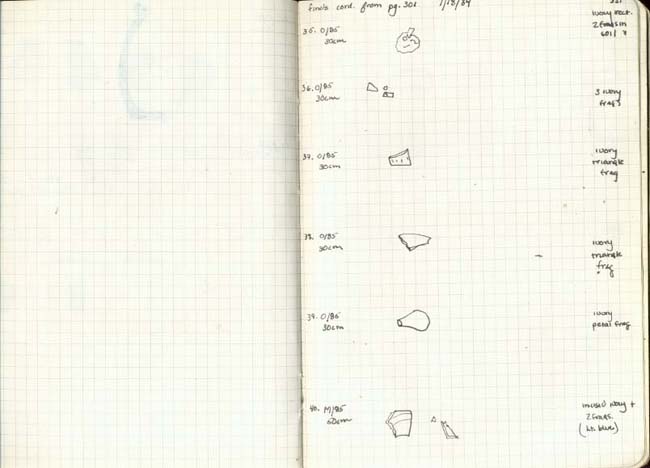 finds cont. from pg. 301 1/18/84
35. O/85
30cm
ivory rect.
36. O/85
30cm
3 ivory
frags
37. O/85
30cm
ivory
triangle
frag
38. O/85
30cm
ivory
triangle
frag
39. O/85
30cm
ivory
petal frag
40. M/85
60cm
incised ivory +
2 frags.
(lt. blue)